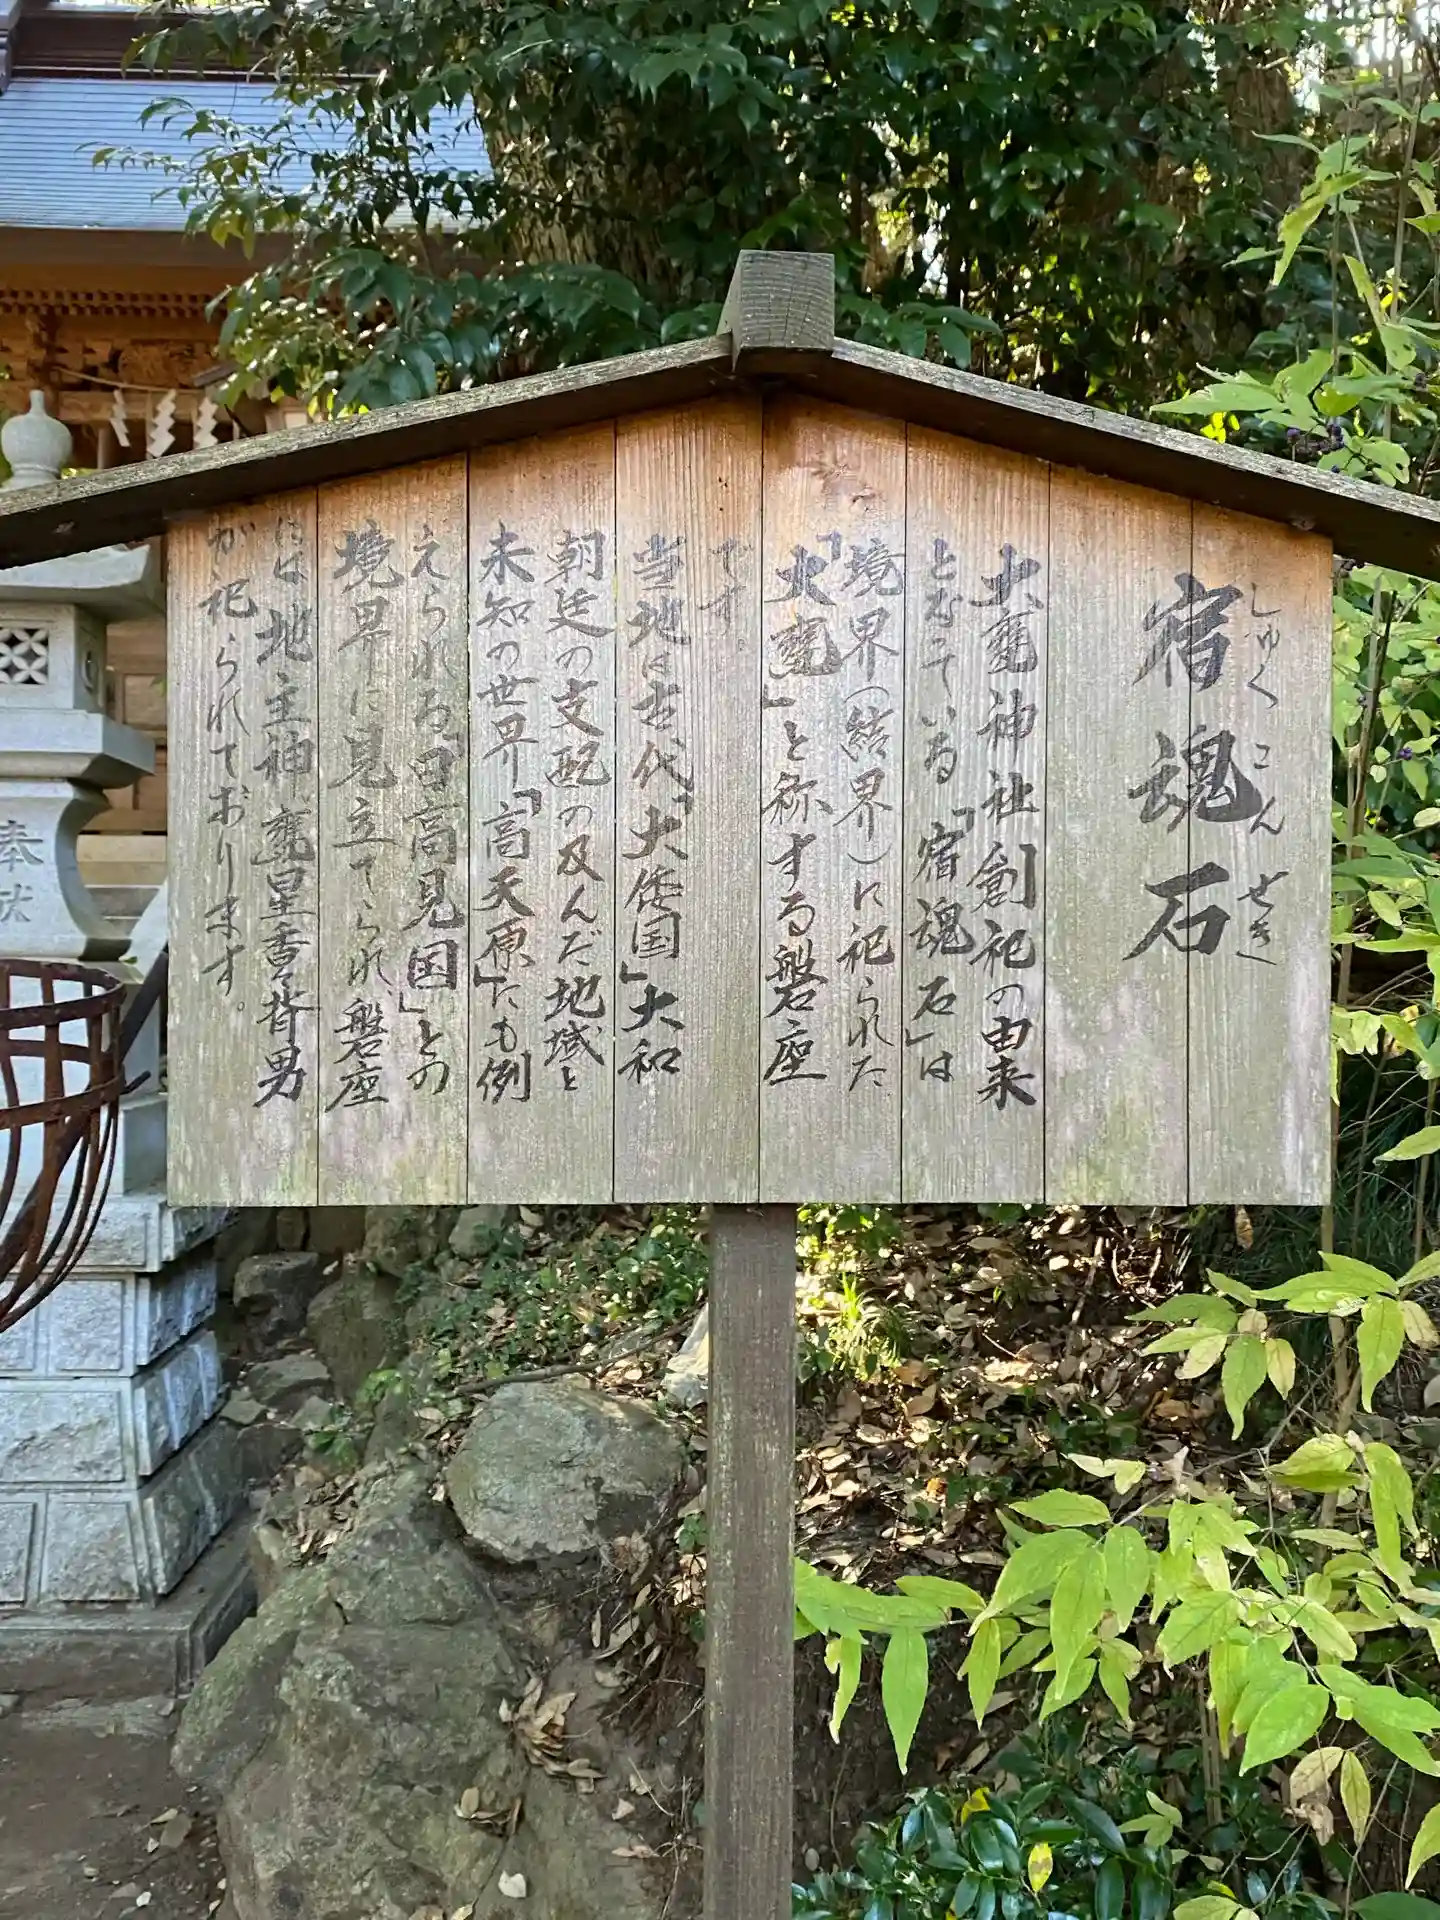 宿魂石
しゅくこんせき
大甕神社創祀の由来
となっている「宿魂石」は
境界(結界)に祀られた
「大甕」と称する磐座
です。
当地は古代「大倭国」大和
朝廷の支配の及んだ地域と
未知の世界「高天原」にも例
えられる「日高見国」との
境界に見立てられ磐座
には地主神、甕星香々背男
が祀られております。
奉